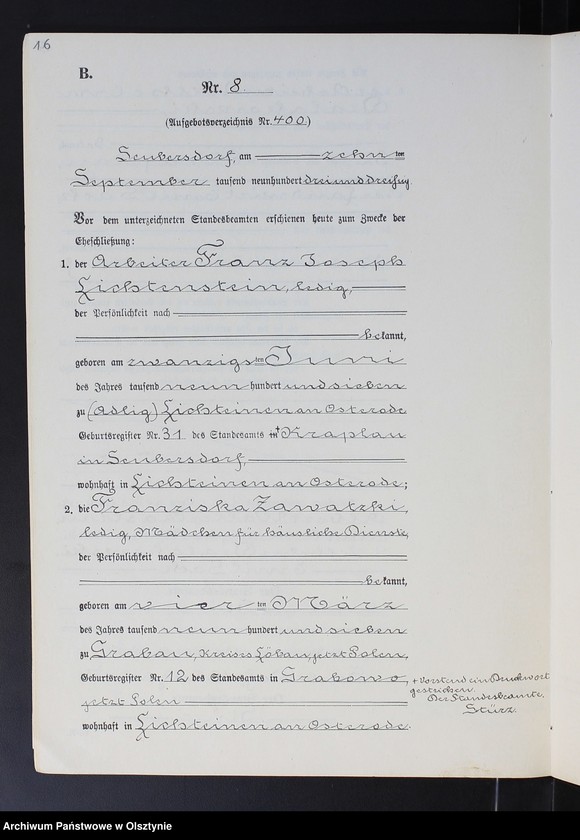 16
B.
Nr. 8.
(Aufgebotsverzeichnis Nr. 400)
Seubersdorf, am zehnten
September tausend neunhundert dreiunddreißig.
Vor dem unterzeichneten Standesbeamten erschienen heute zum Zwecke der
Eheschließung:
1. der Arbeiter Franz Joseph
Lichtenstein, ledig,
der Persönlichkeit nach
bekannt,
geboren am zwanzigsten Juni
des Jahres tausend neun hundert und sieben
zu (Adlig) Lichteinen an Osterode
Geburtsregister Nr. 31 des Standesamts in + Kraplau
in Seubersdorf,
wohnhaft in Lichteinen an Osterode;
2. die Franziska Zawatzki,
ledig, Mädchen für häusliche Dienste,
der Persönlichkeit nach
bekannt,
geboren am vierten März
des Jahres tausend neun hundert und sieben
zu Grabau, Kreises Löbau, jetzt Polen,
Geburtsregister Nr. 12 des Standesamts in Grabowo,
jetzt Polen
wohnhaft in Lichteinen an Osterode.
+ Vorstehend ein Druckwort
gestrichen.
Der Standesbeamte.
Stürz.
Archiwum Państwowe w Olsztynie